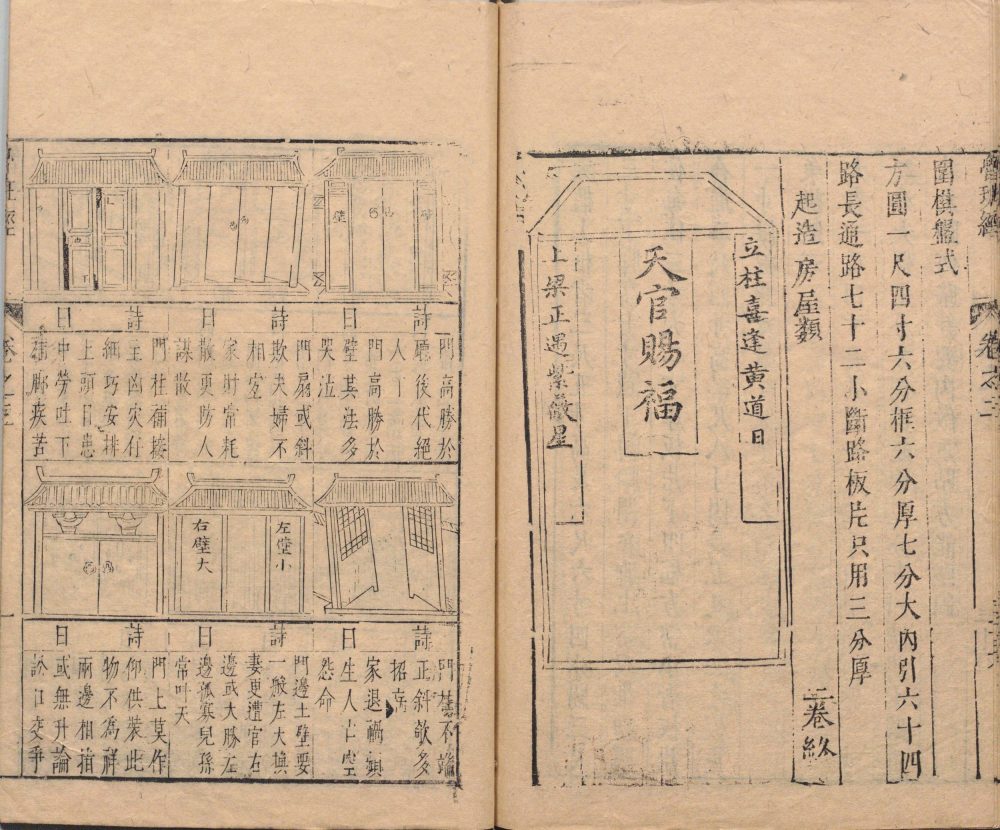 魯班經
卷之二
圍棋盤式
方圓一尺四寸六分框六分厚七分大內引六十四
路長通路七十二小斷路板片只用三分厚
起造房屋類
二卷終
立柱喜逢黄道日
天官賜福
上梁正遇紫微星
壁
壁
詩曰
門高勝於
廳後代絕
人丁
門高勝於
壁其法多
哭泣
詩曰
門扇或斜
欹夫婦不
相宜
家財常耗
散更防人
謀散
詩曰
門杜補接
主凶灾仔
細巧安排
上頭目患
中勞吐下
補脚疾苦
左壁小
右壁大
詩曰
門柱不端
正斜欹多
招病
家退禍頻
生人亡空
怨命
詩曰
門邊土壁要
一般左大換
妻更遭官右
邊或大勝左
邊孤寡兒孫
常叫天
詩曰
門上莫作
仰供裝此
物不為祥
兩邊相指
或無升論
訟口交爭